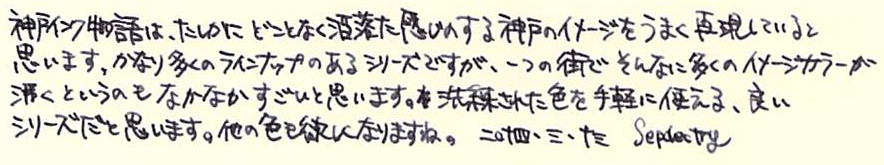 神戸インク物語は、たしかにどことなく洒落た感じのする神戸のイメージをうまく再現していると
思います。かなり多くのラインナップのあるシリーズですが、一つの街でそんなに多くのイメージカラーが
湧くというのもなかなかすごいと思います。洗練された色を手軽に使える、良い
シリーズだと思います。他の色も欲しくなりますね。